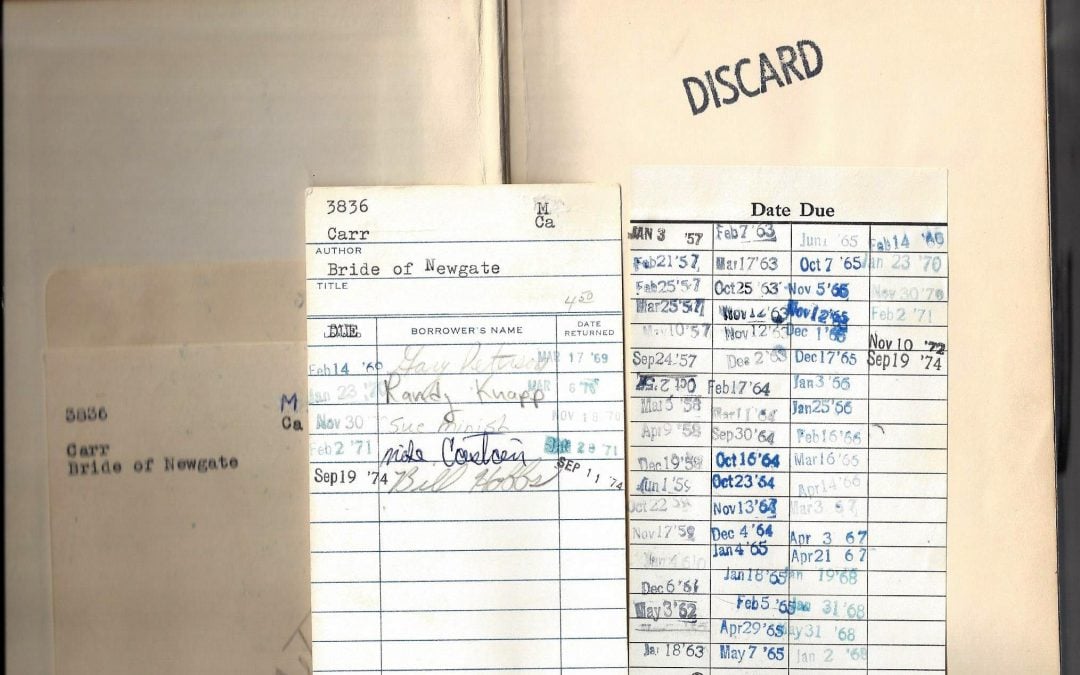 DISCARD
3836 M
Ca
Carr
AUTHOR
Bride of Newgate
TITLE
4 50
DUE BORROWER'S NAME DATE RETURNED
Feb14 '69 Gary MAR 17 '69
Jan 23 '70 Randy Knapp MAR 6 '70
Nov 30 Sue Minish NOV 18 70
Feb2 '71 28 '71
Sep19 '74 Bill Hobbs SEP 11 '74
3836 M
Ca
Carr
Bride of Newgate
Date Due
JAN 3 '57 Feb7'63 Jun1 '65 Feb14 '69
Feb21'57 Mar17'63 Oct7 '65 Jan 23 '70
Feb25'57 Oct25 '63 Nov 5'65 Nov30'70
Mar25'57 Nov12'63 Nov12'65 Feb2 '71
May10'57 Nov12'63 Dec 1'65 Nov10 '72
Sep24.'57 Dec 2'63 Dec17'65 Sep19 '74
Oct 2'57 Feb17'64 Jan3'56
Mar5 '58 Mar11'64 Jan25'56
Apr9 '58 Sep30'64 Feb16'66
Dec19'58 Oct16'64 Mar16'66
Jun1'59 Oct23'64 Apr14'66
Oct22 Nov13'64 Mar3 67
Nov17'59 Dec 4'64 Apr 3 67
Jan4'65 Apr21 67
Jan18'65 Jan 19'68
Dec6'61 Feb5 '65 Jan 31'68
May3'62 Apr29'65 May31 '68
Jan18'63 May7 '65 Jan 2 '69